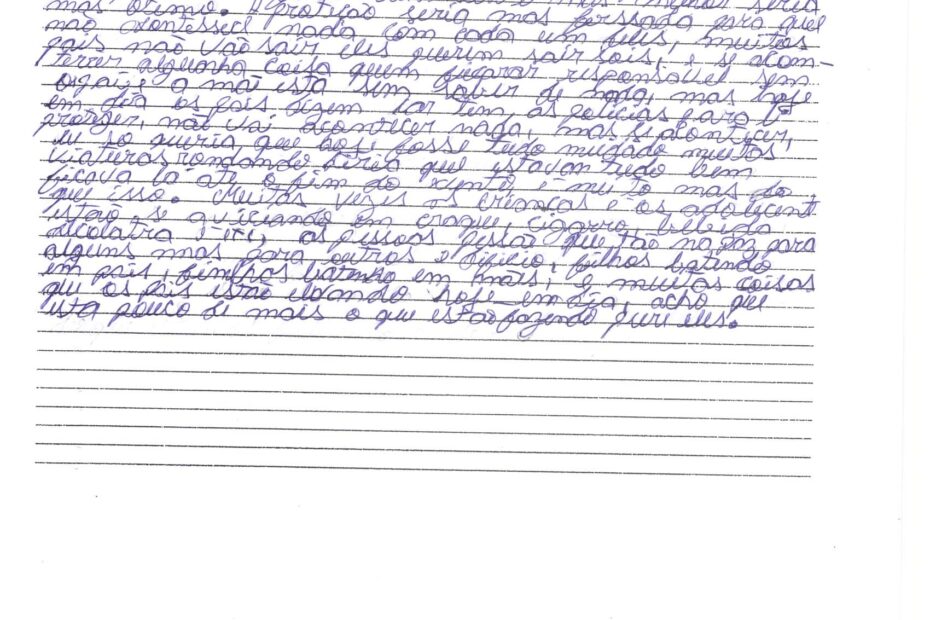 mas otimo. A proteção seria mas forssada para que
não acontessei nada com cada um deles, muitos
pais não vão sair eles querim sair sois, e se acom-
terrer algunha coisa quem responsavel sem
a mãe ista sem saber de nada, mas hoje
em dia os pais dizem lar tem, as policias para
proteger, não vai acontecer nada, mas si aconticer,
eu so queria que hoje fosse tudo mudado muitas
viaturas rondando viria que estavam tudo bem
ficava la ate o fim do evento e muito mas do
que isso. Muitas vezes os crianças e os adolecent
istão se aviciando em craque, cigarro, bebida
alcolatra as pessoas pessão que tão na paz para
alguns mas para outros e dificio, filhos batindo
em pais, finlhos batinho em mães, e muitas coisas
qui os pais istão levando hoje em dia, acho que
ista pouco de mais o que estão fazendo puri eles.